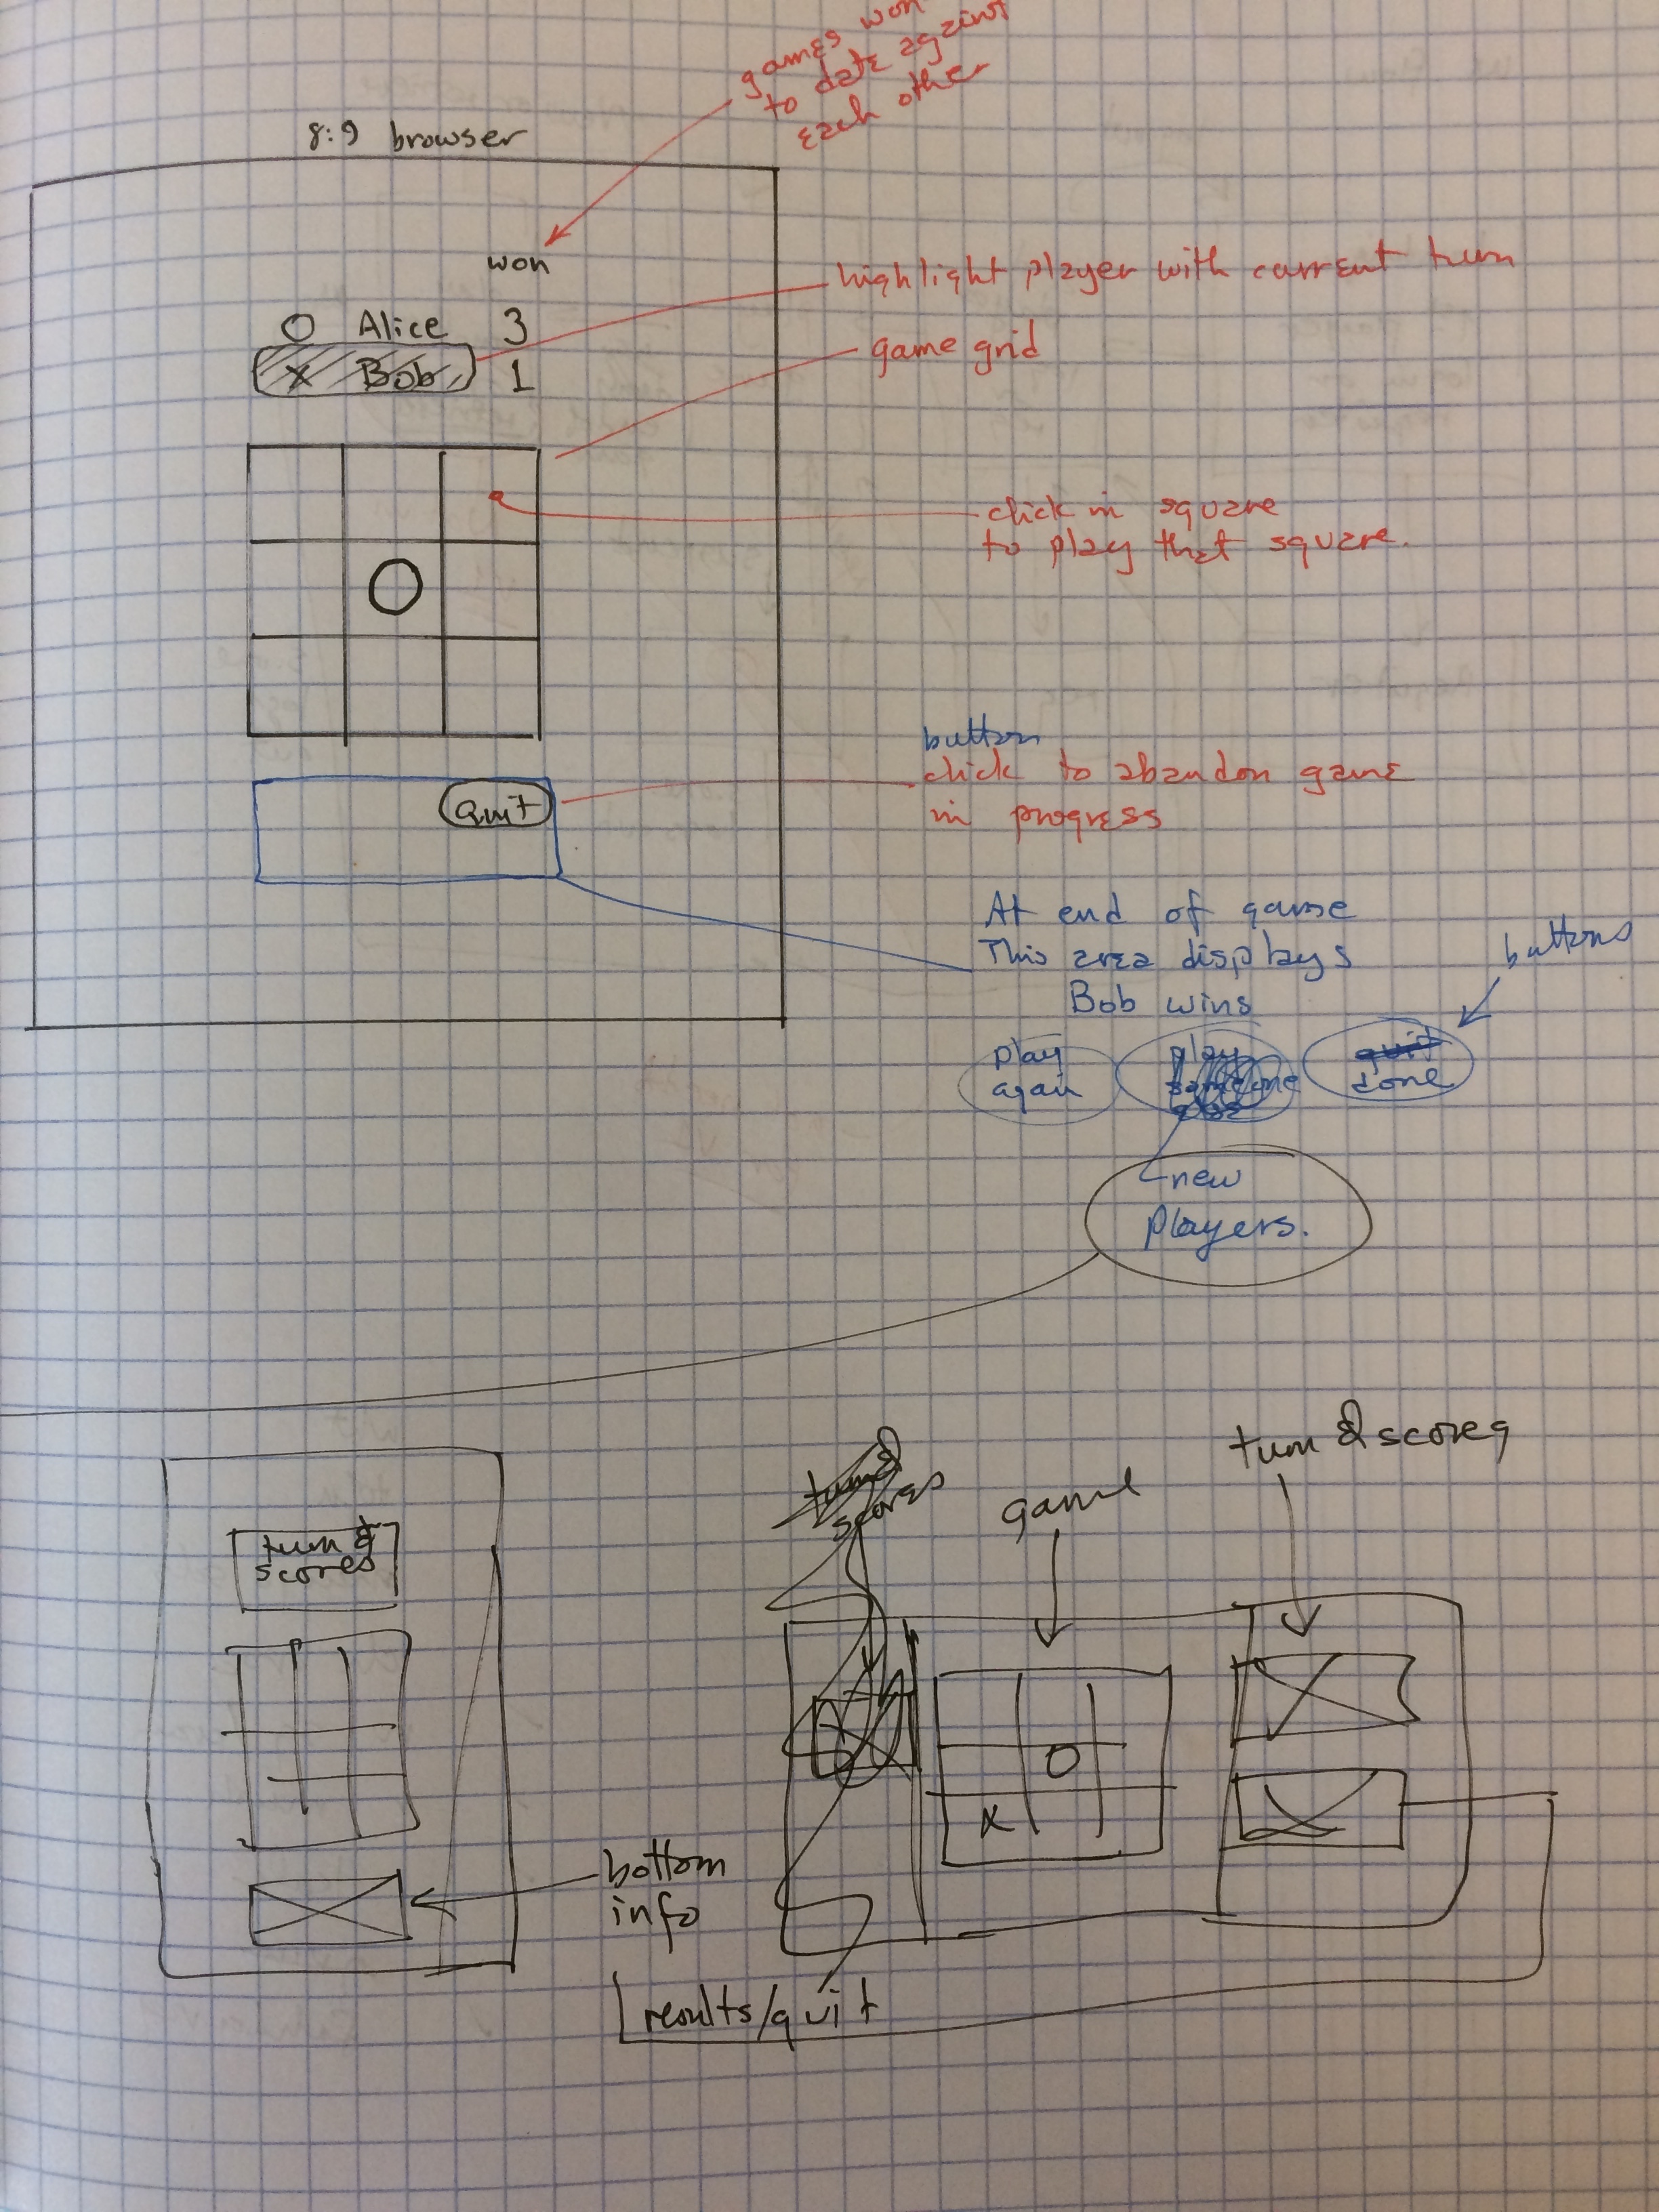 games won
to date against
each other
8:9 browser
won
highlight player with current turn
O Alice 3
X Bob 1
game grid
click in square
to play that square.
O
button
Quit
click to abandon game
in progress
At end of game
This area displays
buttons
Bob wins
play
again
play
someone
else
quit
done
new
players.
turn & scores
game
turn &
scores
turn &
scores
O
X
bottom
info
results/quit